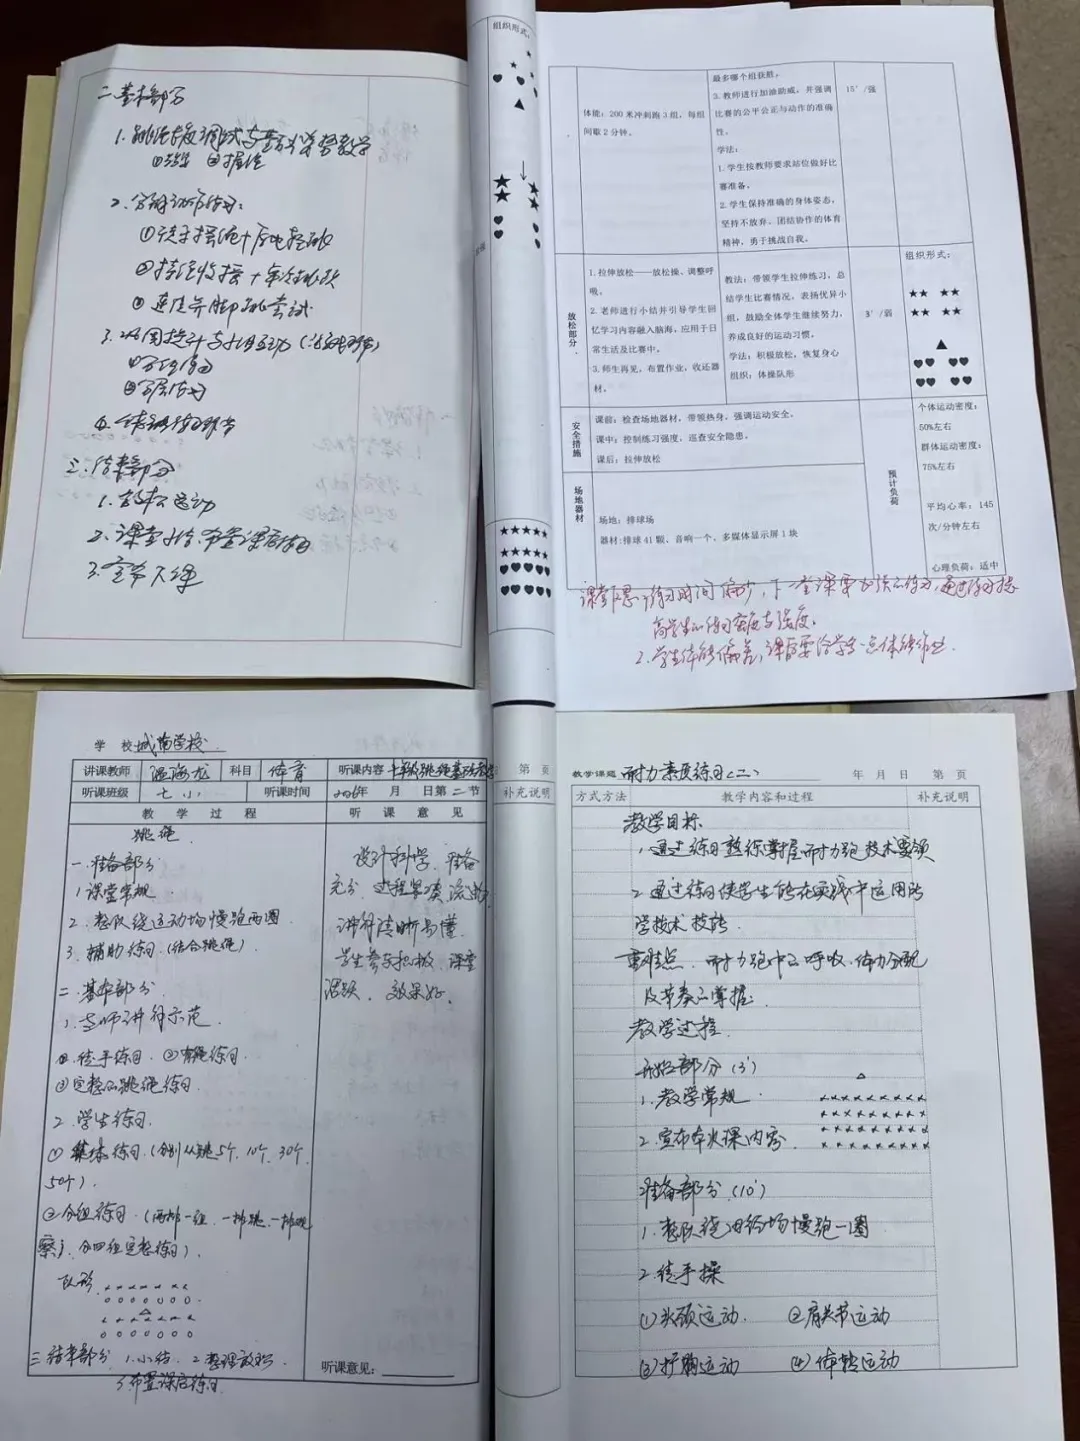 二、基本部分
1. 跳绳长度调试与基本姿势教学
②握绳
2. 分解动作练习：
①徒手摇绳+原地轻跳
②持绳收摇+单次跳跃
③连续并脚跳尝试
①分组练习
②分层练习
三、结束部分
1. 放松运动
2. 课堂小结、布置课后练习
3. 宣布下课
组织形式：
体能：200米冲刺跑3组，每组
间歇2分钟。
最多哪个组获胜。
3.教师进行加油助威，并强调
比赛的公平公正与动作的准确
性。
学法：
1.学生按教师要求站位做好比
赛准备。
2.学生保持准确的身体姿态，
坚持不放弃、团结协作的体育
精神，勇于挑战自我。
15′/强
放松部分
1.拉伸放松——放松操、调整呼
吸。
2.老师进行小结并引导学生回
忆学习内容融入脑海，应用于日
常生活及比赛中。
3.师生再见，布置作业，收还器
材。
教法：带领学生拉伸练习，总
结学生比赛情况，表扬优异小
组，鼓励全体学生继续努力，
养成良好的运动习惯。
学法：积极放松，恢复身心
组织：体操队形
3′/弱
组织形式：
安全措施
课前：检查场地器材，带领热身，强调运动安全。
课中：控制练习强度，巡查安全隐患。
课后：拉伸放松
场地器材
场地：排球场
器材:排球41颗、音响一个、多媒体显示屏1块
预计负荷
个体运动密度：
50%左右
群体运动密度：
75%左右
平均心率：145
次/分钟左右
心理负荷：适中
课堂反思：1.练习时间偏少，下一堂课要加强练习，通过练习提
高学生的练习密度与强度。
2.学生体能偏差，课后要给学生一点体能作业.
学校 城南学校
讲课教师 温海龙 科目 体育 听课内容 七年级跳绳基础教学
听课班级 七.小 听课时间 2026年 月 日第二节
教学过程 听课意见
跳绳
一.准备部分
1 课堂常规
2. 整队绕运动场慢跑两圈
3. 辅助练习（结合跳绳）.
二. 基本部分.
1. 老师讲解示范.
①.徒手练习. ②有绳练习.
③完整的跳绳练习.
2. 学生练习.
① 集体练习.（分别从跳5个、10个、30个、
50个）.
②分组练习.（两排一组、一排跳、一排观
察）、分四组完整练习）.
队形
三 结束部分 1.小结. 2 整理放松.
3.布置课后练习.
设计科学、准备
充分、过程紧凑、流畅
讲解清晰易懂.
学生参与积极、课堂
活跃、效果好.
听课意见：
第 页
补充说明
教学课题 耐力素质练习(二) 年 月 日 第 页
方式方法 教学内容和过程 补充说明
教学目标.
1. 通过练习熟练掌握耐力跑技术要领
2. 通过练习使学生能在实践中运用所
学技术技能.
重难点、耐力跑中的呼吸、体力分配
及节奏的掌握.
教学过程.
开始部分（3′）
1. 教学常规.
2. 宣布本次课内容.
准备部分.（10′）
1. 整队绕田径场慢跑一圈
2. 徒手操
①头颈运动. ②肩关节运动
③扩胸运动 ④体转运动